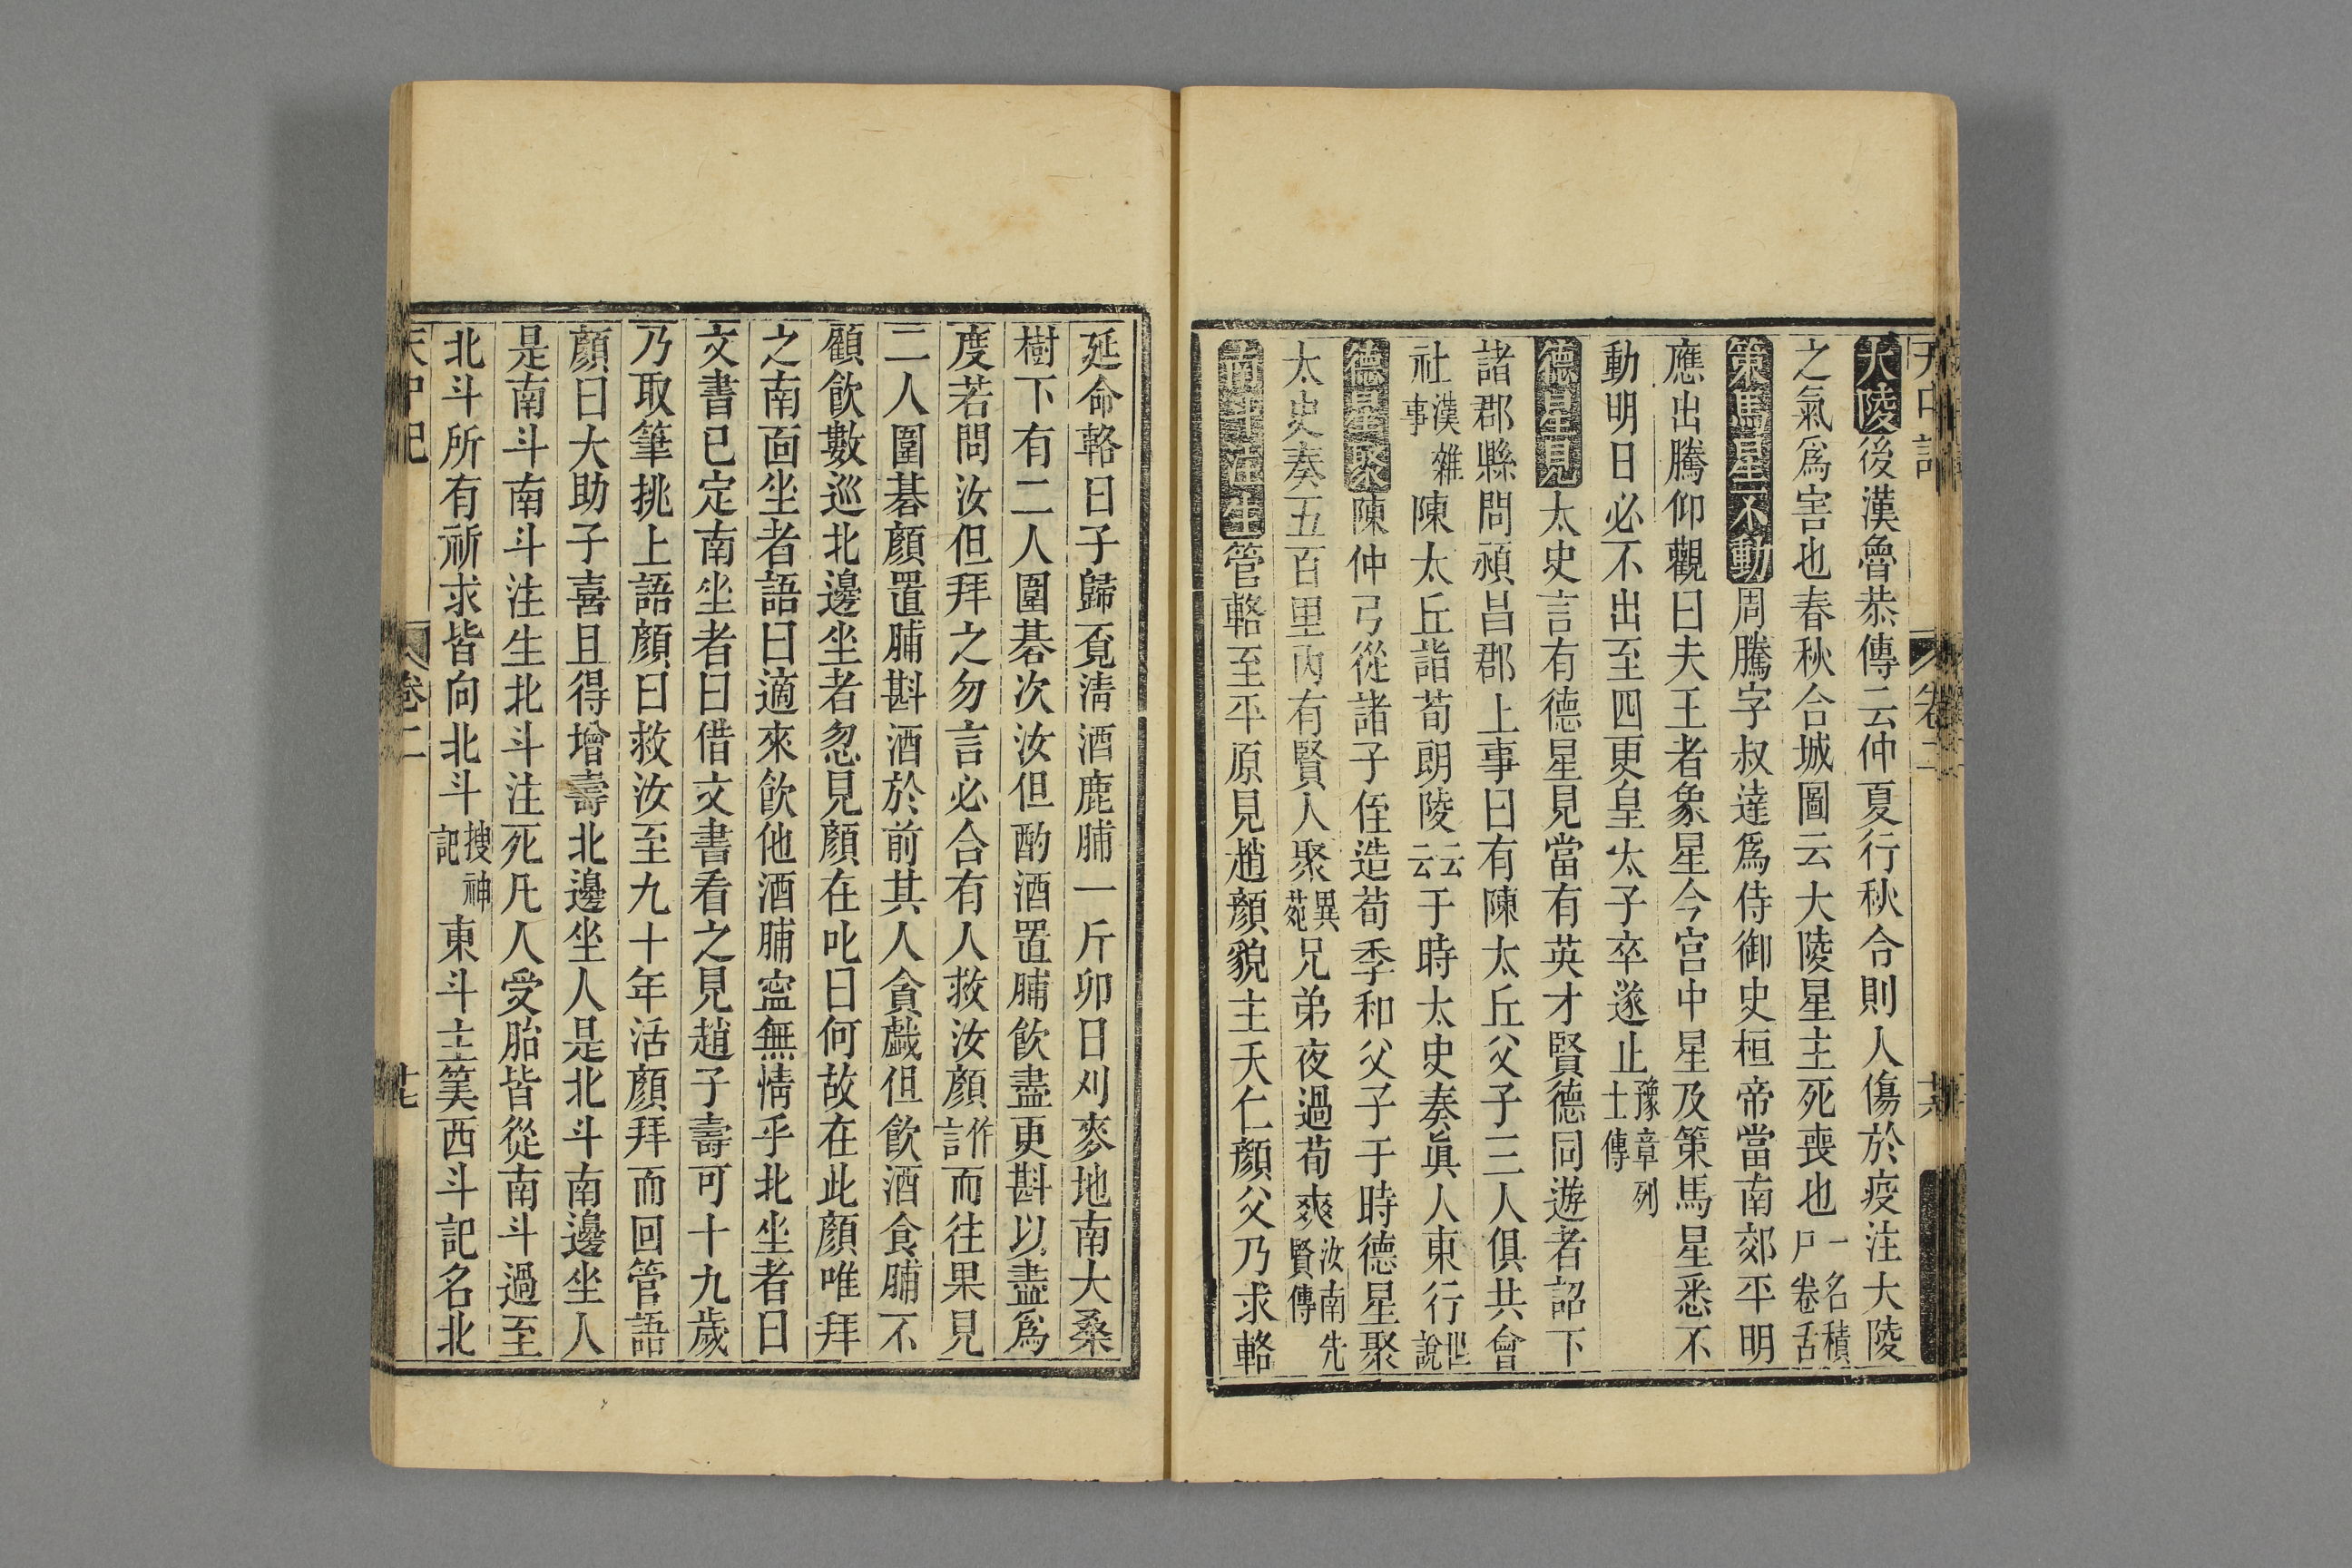 天中記 卷二
大陵後漢魯恭傳云仲夏行秋令則人傷於疫注大陵
之氣爲害也春秋合城圖云大陵星主死喪也一名積尸卷舌
策馬星不動周騰字叔達爲侍御史桓帝當南郊平明
應出騰仰觀曰夫王者象星今宫中星及策馬星悉不
動明日必不出至四更皇太子卒遂止豫章列士傳
德星見太史言有德星見當有英才賢德同遊者詔下
諸郡縣問潁昌郡上事曰有陳太丘父子三人俱共會
社漢雜事陳太丘詣荀朗陵云云于時太史奏眞人東行世說
德星聚陳仲弓從諸子侄造荀季和父子于時德星聚
太史奏五百里内有賢人聚異苑兄弟夜過荀爽汝南先賢傳
南斗注生管輅至平原見趙顏貌主夭亡顏父乃求輅
延命輅曰子歸覓清酒鹿脯一斤卯日刈麥地南大桑
樹下有二人圍碁次汝但酌酒置脯飲盡更斟以盡爲
度若問汝但拜之勿言必合有人救汝顏作言而往果見
二人圍碁顏置脯斟酒於前其人貪戲但飲酒食脯不
顧飲數巡北邊坐者忽見顏在叱曰何故在此顏唯拜
之南面坐者語曰適來飲他酒脯寧無情乎北坐者曰
文書已定南坐者曰借文書看之見趙子壽可十九歲
乃取筆挑上語顏曰救汝至九十年活顏拜而回管語
顏曰大助子喜且得增壽北邊坐人是北斗南邊坐人
是南斗南斗注生北斗注死凡人受胎皆從南斗過至
北斗所有祈求皆向北斗搜神記東斗主筭西斗記名北
天中記 卷二 廿七